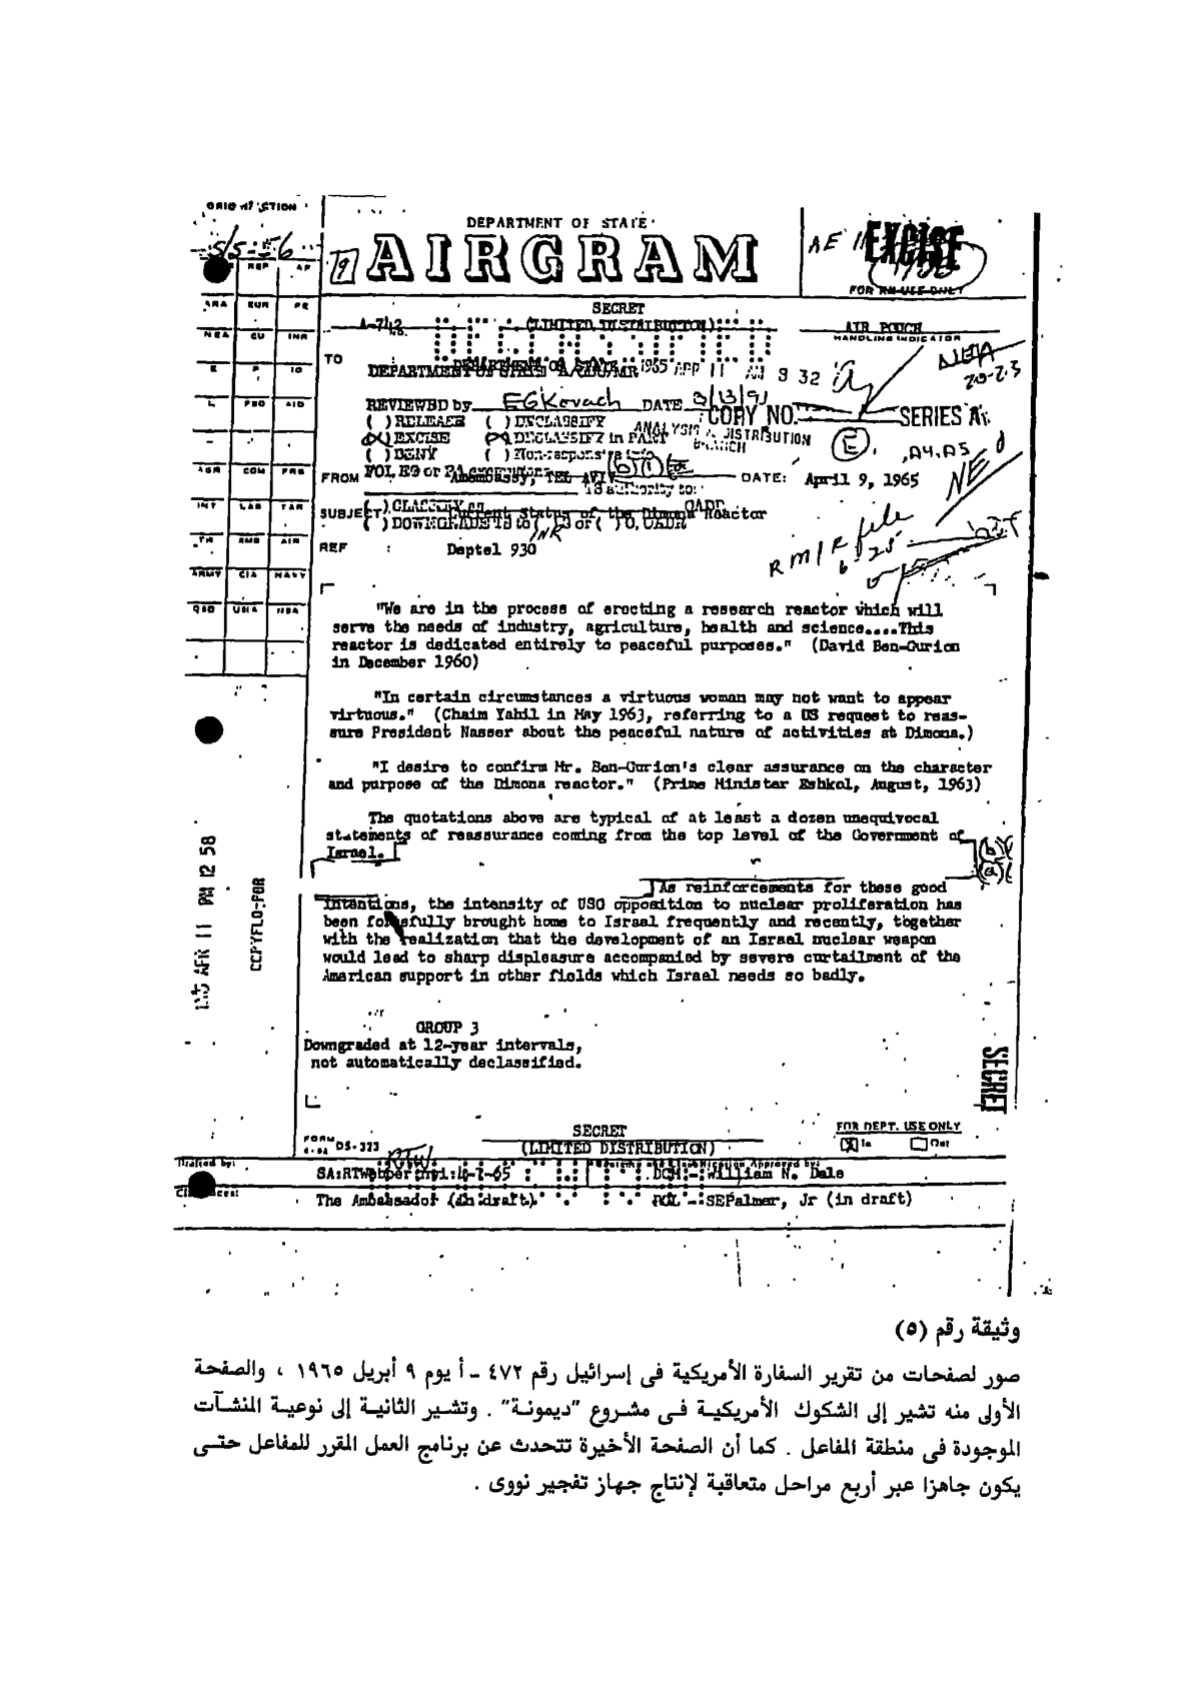 ORIGIN/ACTION
DEPARTMENT OF STATE
AIRGRAM
EXCISE
FOR RM USE ONLY
S/S
REP AF
ARA EUR FE
NEA CU INR
E P IO
L FBO AID
AGR COM FRB
INT LAB TAR
TR XMB AIR
ARMY CIA NAVY
OSD USIA NSA
SECRET
(LIMITED DISTRIBUTION)
A-742
AIR POUCH
HANDLING INDICATOR
TO
DEPARTMENT OF STATE
REVIEWED by EGKovach DATE 3/13/91
COPY NO. SERIES A
( ) RELEASE ( ) DECLASSIFY
(X) EXCISE (X) DECLASSIFY in PART
( ) DENY ( ) Non-responsive info
ANALYSIS & DISTRIBUTION
BRANCH
FROM Amembassy, TEL AVIV DATE: April 9, 1965
SUBJECT: Current Status of the Dimona Reactor
REF : Deptel 930
RM/R file
"We are in the process of erecting a research reactor which will
serve the needs of industry, agriculture, health and science....This
reactor is dedicated entirely to peaceful purposes." (David Ben-Gurion
in December 1960)
"In certain circumstances a virtuous woman may not want to appear
virtuous." (Chaim Yahil in May 1963, referring to a US request to reas-
sure President Nasser about the peaceful nature of activities at Dimona.)
"I desire to confirm Mr. Ben-Gurion's clear assurance on the character
and purpose of the Dimona reactor." (Prime Minister Eshkol, August, 1963)
The quotations above are typical of at least a dozen unequivocal
statements of reassurance coming from the top level of the Government of
Israel.
As reinforcements for these good
intentions, the intensity of USG opposition to nuclear proliferation has
been forcefully brought home to Israel frequently and recently, together
with the realization that the development of an Israel nuclear weapon
would lead to sharp displeasure accompanied by severe curtailment of the
American support in other fields which Israel needs so badly.
APR 11 PM 12 58
COPYFLO-PBR
GROUP 3
Downgraded at 12-year intervals,
not automatically declassified.
SECRET
FORM DS-323
SECRET
(LIMITED DISTRIBUTION)
FOR DEPT. USE ONLY
In Out
Drafted by:
SA:RTWebber 4-7-65
DCM - William N. Dale
Clearances:
The Ambassador (in draft) POL - SEPalmer, Jr (in draft)
وثيقة رقم (٥)
صور لصفحات من تقرير السفارة الأمريكية فى إسرائيل رقم ٤٧٢ – أ يوم ٩ أبريل ١٩٦٥ ، والصفحة
الأولى منه تشير إلى الشكوك الأمريكية فى مشروع "ديمونة" . وتشير الثانية إلى نوعية المنشآت
الموجودة فى منطقة المفاعل . كما أن الصفحة الأخيرة تتحدث عن برنامج العمل المقرر للمفاعل حتى
يكون جاهزا عبر أربع مراحل متعاقبة لإنتاج جهاز تفجير نووى .